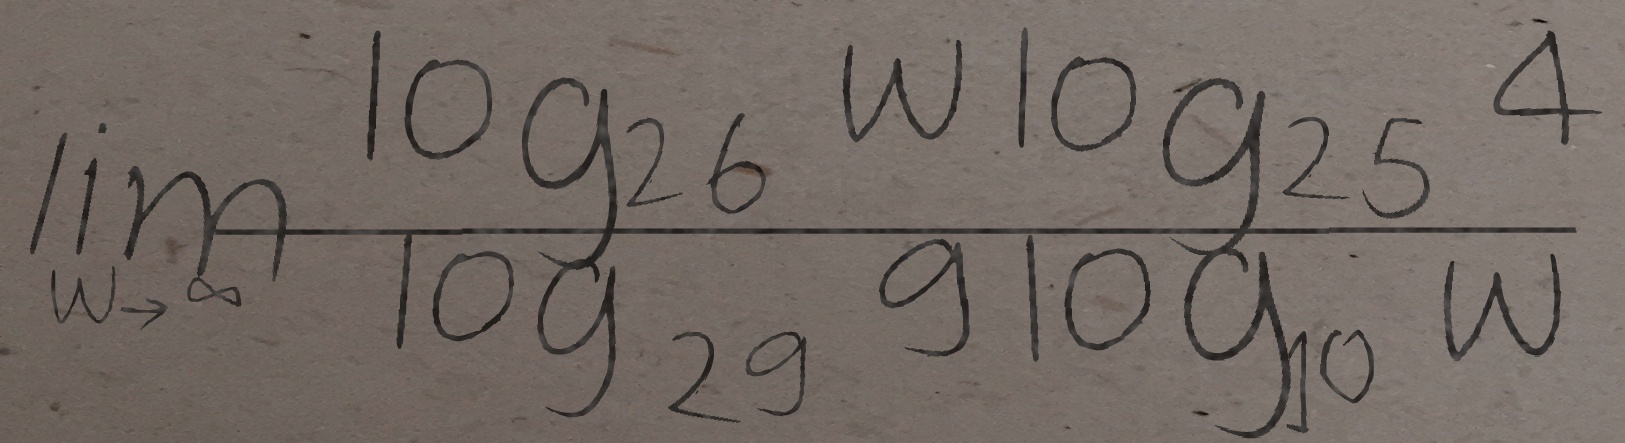 \lim_{w \to \infty} \frac{\log_{26} w \log_{25} 4}{\log_{29} 9 \log_{10} w}